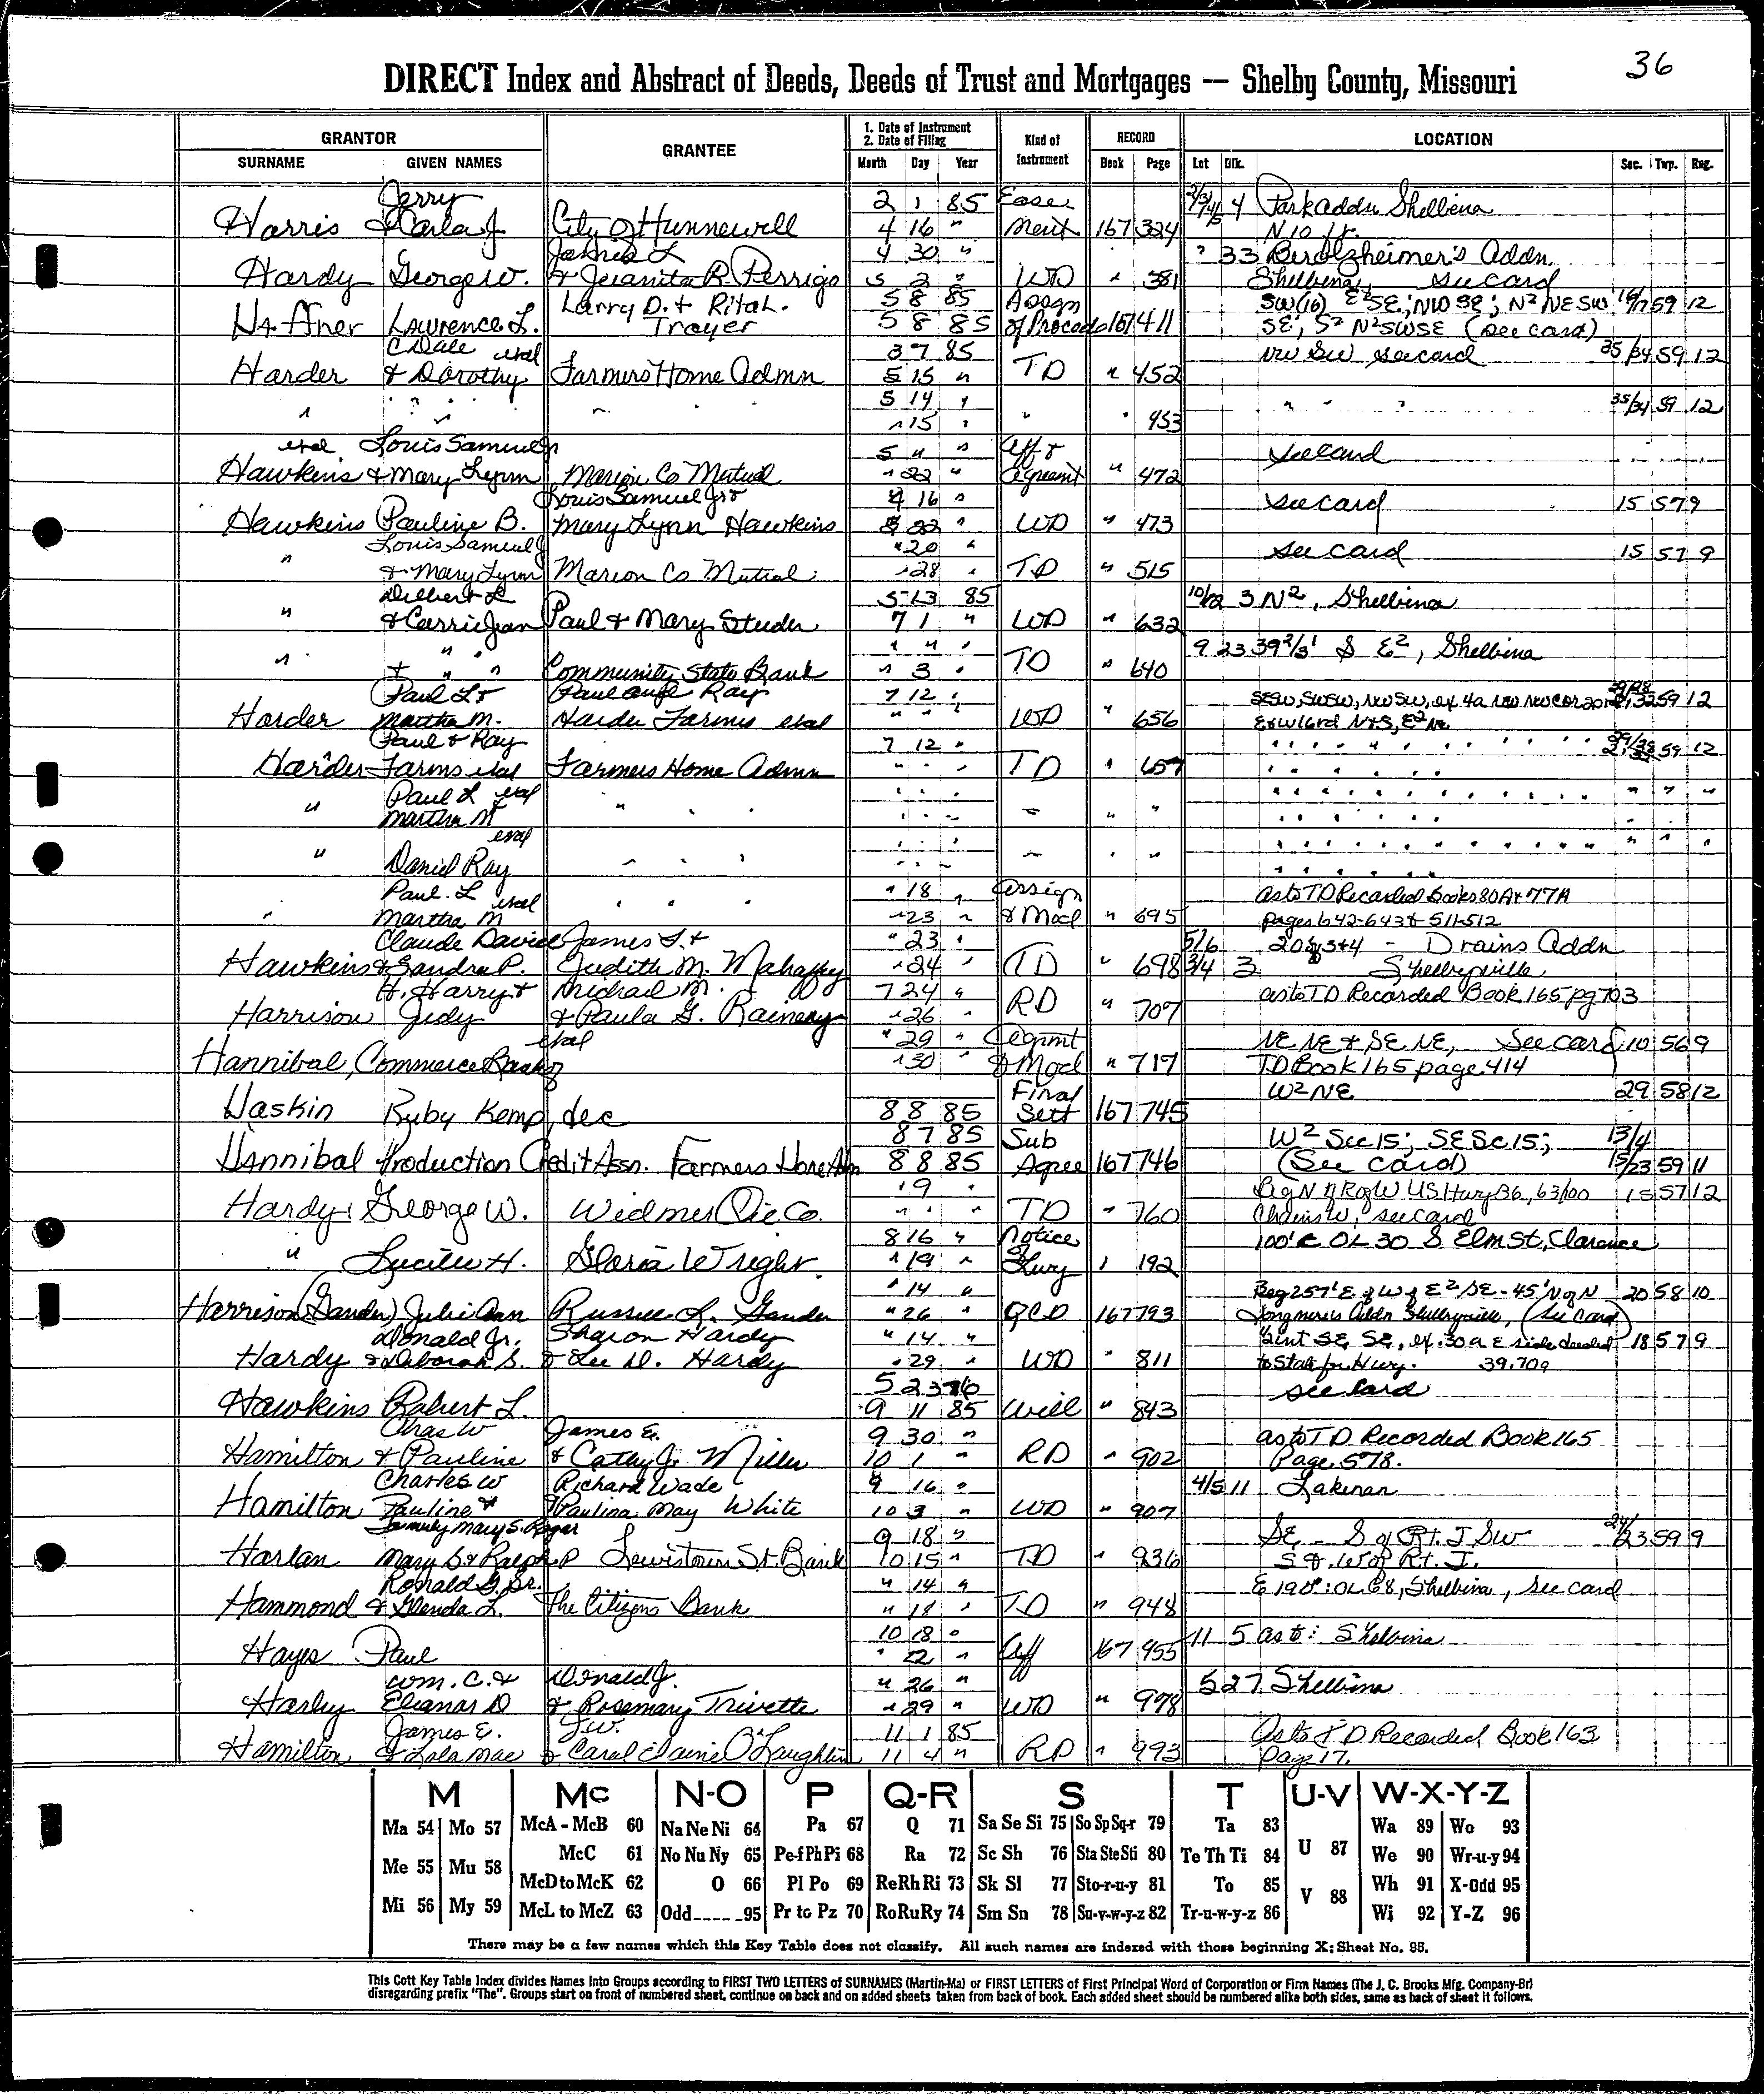 36
DIRECT Index and Abstract of Deeds, Deeds of Trust and Mortgages — Shelby County, Missouri
GRANTOR GRANTEE 1. Date of Instrument 2. Date of Filing Kind of Instrument RECORD LOCATION
SURNAME GIVEN NAMES Month Day Year Book Page Lot Blk. Sec. Twp. Rng.
Jerry 2 1 85 Ease 4 Park Addn Shelbina
Harris & Carla J City of Hunnewell 4 16 " ment 167 324 N 10 ft.
James L 4 30 " ? 33 Berolzheimer's Addn.
Hardy George W. & Juanita R. Perrigo 5 2 " WD " 381 Shelbina, see card
Larry D. & Rita L. 5 8 85 Assgn SW(16) E²SE; NW SE; N² NE SW 59 12
Haffner Lawrence L. Troyer 5 8 85 of Proceeds 167 411 SE; S² N² SWSE (see card)
C Dale etal 3 7 85 NW SW see card 35/34 59 12
Harder & Dorothy Farmers Home Admn 5 15 " TD " 452
" " " " 5 14 " " " " 35/34 59 12
" 15 " " " 453
etal Louis Samuel Jr 5 " " Aff & see card
Hawkins & Mary Lynn Marion Co Mutual " 22 " Agreemt " 472
Louis Samuel Jr & 4 16 " see card 15 57 9
Hawkins Pauline B. Mary Lynn Hawkins 5 22 " WD " 473
Louis Samuel J " 20 " see card 15 57 9
" & Mary Lynn Marion Co Mutual " 28 " TD " 515
Delbert L 5 13 85 10/12 3 N², Shelbina
" & Carrie Jean Paul & Mary Studer 7 1 " WD " 632
" " " " " 9 23 39 2/3' S E², Shelbina
" & " " Community State Bank " 3 " TD " 640
Paul L & Paul and Ray 7 12 " SESW, SWSW, NWSW, ex 4a NW NW cor 59 12
Harder Martha M. Harder Farms etal " " " WD " 656 Ex W 16rd N&S, E² NE
Paul & Ray 7 12 " " " " " 59 12
Harder Farms etal Farmers Home Admn " " " TD " 657 " " " "
Paul L etal " " " " " " " " " " "
" Martha M " " " — " " " " " "
etal " " " " " " " " " "
" Daniel Ray " " " " " " " " " " "
Paul L etal " " " " 18 " Assign as to TD Recorded Books 80A & 77A
" Martha M " 23 " & Mod " 695 pages 642-643 & 511-512
Claude David James S. & " 23 " 5/6 2 of 3&4 - Drains Addn
Hawkins & Sandra P. Judith M. Mahaffey " 24 " TD " 698 3/4 3 Shelbyville
H. Harry & Michael M. 7 24 " as to TD Recorded Book 165 pg 703
Harrison Judy & Paula G. Rainey " 26 " RD " 707
etal " 29 " Agrmt NE NE & SE NE, See card 10 56 9
Hannibal, Commerce Bank of " 30 " & Mod " 717 TD Book 165 page 414
Final W² NE 29 58 12
Haskin Ruby Kemp, dec 8 8 85 Sett 167 745
8 7 85 Sub W² Sec 15; SE Sc 15; 13/4
Hannibal Production Credit Assn. Farmers Home Adm 8 8 85 Agree 167 746 (See card) 15/23 59 11
" 9 " Beg N of R of W US Hwy 36, 63/100 15 57 12
Hardy George W. Widmer Pie Co. " " " TD " 760 Chains W, see card
8 16 " Notice 100' E OL 30 S Elm St, Clarence
" Lucille H. Gloria Wright " 19 " Hwy 1 192
" 14 " Beg 257' E of W of E² SE - 45' N of N 20 58 10
Harrison (Gander) Julie Ann Russell L. Gander " 26 " QCD 167 793 Longmire's Addn Shelbyville, (see card)
Donald Jr. Sharon Hardy " 14 " ½ int SE SE, ex .30 a E side deeded 18 57 9
Hardy & Deborah S. & Lee D. Hardy " 29 " WD " 811 to State for Hwy. 39.70a
5 23 76 see card
Hawkins Robert L. 9 11 85 Will " 843
Chas W James E. 9 30 " as to TD Recorded Book 165
Hamilton & Pauline & Cathy J. Miller 10 1 " RD " 902 Page 578.
Charles W Richard Wade 9 16 " 4/5 11 Lakenan
Hamilton Pauline & & Paulina May White 10 3 " WD " 907
formerly Mary S. Roger 9 18 " SE - S of Rt. J SW 24/23 59 9
Harlan Mary S. & Ralph P Lewistown St. Bank 10 15 " TD " 936 S & W of Rt. J.
Ronald G. Sr. " 14 " E 190': OL 68, Shelbina, see card
Hammond & Glenda L. The Citizens Bank " 18 " TD " 948
10 18 " 11 5 as to: Shelbina
Hayes Paul " 22 " Aff 167 955
Wm. C. & Donald J. " 26 " 5 27 Shelbina
Harley Eleanor D & Rosemary Trivette " 29 " WD " 978
James E. J.W. 11 1 85 As to TD Recorded Book 163
Hamilton & Lola Mae & Carol Elaine O'Laughlin 11 4 " RD " 993 Page 17.
M Mc N-O P Q-R S T U-V W-X-Y-Z
Ma 54 Mo 57 McA - McB 60 Na Ne Ni 64 Pa 67 Q 71 Sa Se Si 75 So Sp Sq-r 79 Ta 83 U 87 Wa 89 Wo 93
Me 55 Mu 58 McC 61 No Nu Ny 65 Pe-f Ph Pi 68 Ra 72 Sc Sh 76 Sta Ste Sti 80 Te Th Ti 84 We 90 Wr-u-y 94
McD to McK 62 O 66 Pl Po 69 Re Rh Ri 73 Sk Sl 77 Sto-r-u-y 81 To 85 V 88 Wh 91 X-Odd 95
Mi 56 My 59 McL to McZ 63 Odd----- -95 Pr to Pz 70 Ro Ru Ry 74 Sm Sn 78 Su-v-w-y-z 82 Tr-u-w-y-z 86 Wi 92 Y-Z 96
There may be a few names which this Key Table does not classify. All such names are indexed with those beginning X; Sheet No. 95.
This Cott Key Table Index divides Names Into Groups according to FIRST TWO LETTERS of SURNAMES (Martin-Ma) or FIRST LETTERS of First Principal Word of Corporation or Firm Names (The J. C. Brooks Mfg. Company-Br)
disregarding prefix "The". Groups start on front of numbered sheet, continue on back and on added sheets taken from back of book. Each added sheet should be numbered alike both sides, same as back of sheet it follows.